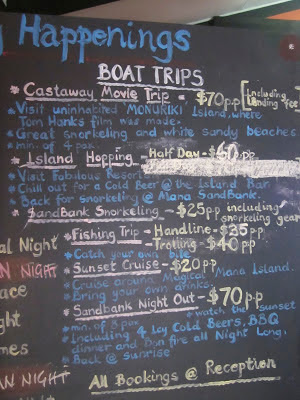 Happenings
BOAT TRIPS
Castaway Movie Trip - $70pp [including landing fee]
Visit uninhabited MONURIKI Island, where
Tom Hanks film was made.
Great snorkeling and white sandy beaches
min. of 4 pax.
Island Hopping - Half Day - $60pp
Visit Fabulous Resort
Chill out for a Cold Beer @ the Island Bar
Back for snorkeling @ Mana Sandbank.
SandBank Snorkeling - $25pp including
snorkeling gear
Fishing Trip - Handline - $35pp
Trolling - $40pp
Catch your own bite
Sunset Cruise - $20pp
Cruise around Magical Mana Island.
Bring your own drinks.
Sandbank Night Out - $70pp
min. of 8 pax
watch the sunset
Including 4 Icy Cold Beers, BBQ
dinner and Bon fire all Night Long,
Back @ sunrise
All Bookings @ Reception
al Night
N NIGHT
ace
ght
mes
AN NIGHT